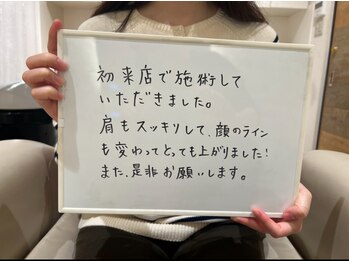 初来店で施術して
いただきました。
肩もスッキリして、顔のライン
も変わってとっても上がりました!
また、是非お願いします。